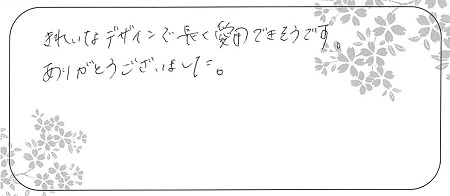 きれいなデザインで長く愛用できそうです。
ありがとうございました。